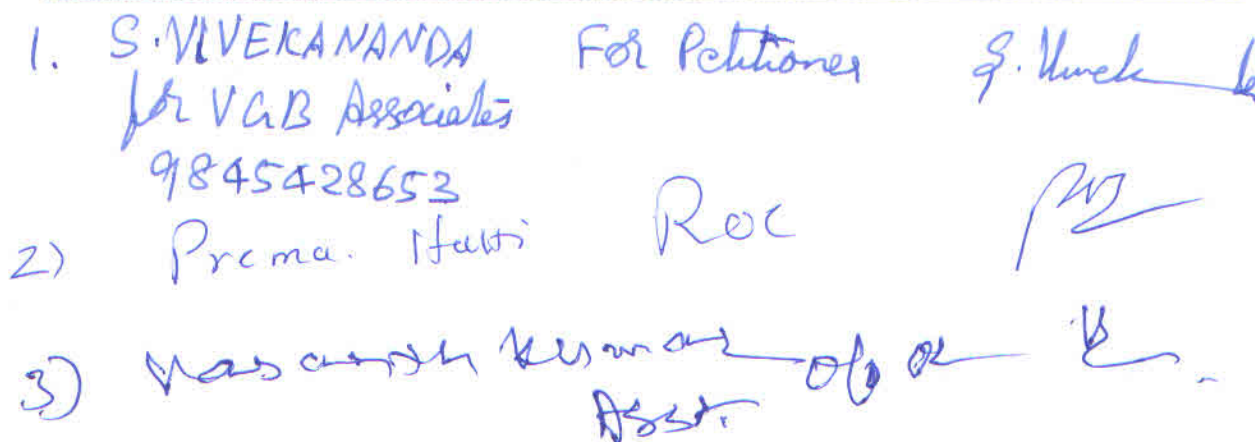 1. S. VIVEKANANDA For Petitioner S. Vivek
for VGB Associates
9845428653
2) Prema. Hatti ROC
3) Vasanth Kumar o/o
Asst.